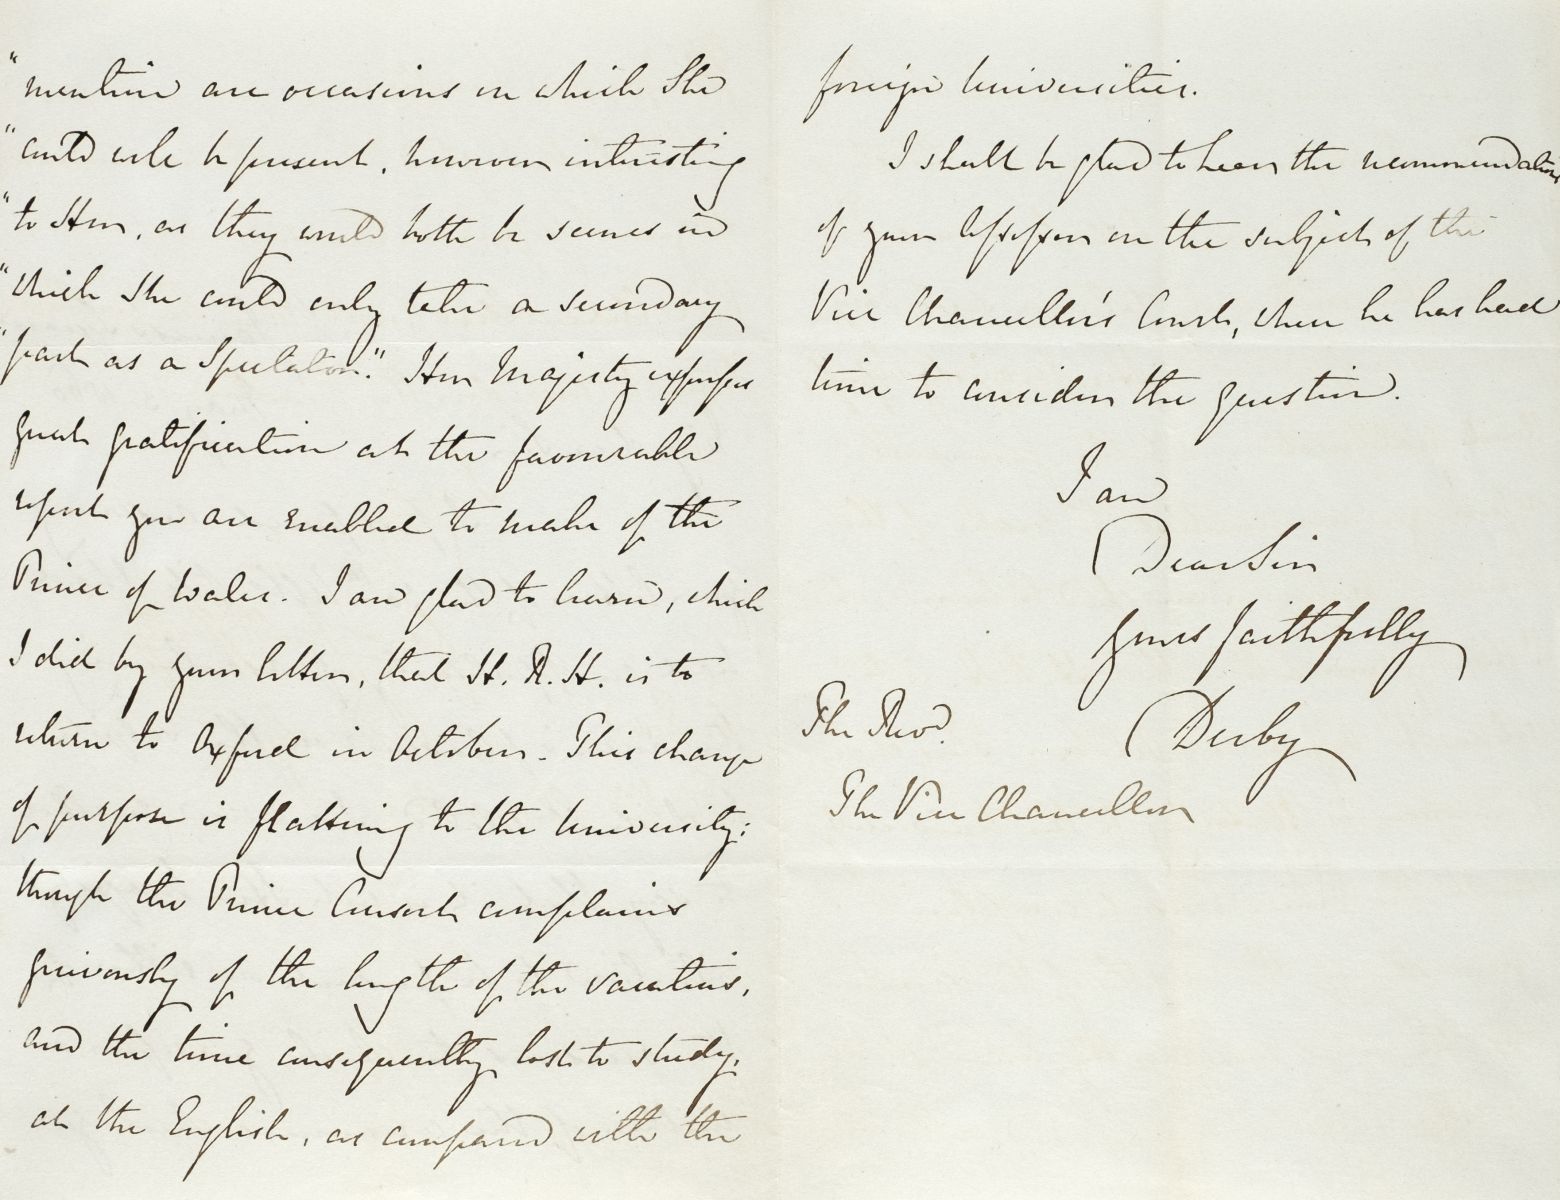 "mention are occasions on which She
"could not be present, however interesting
"to Her, as they would both be scenes in
"which She could only take a secondary
"part as a Spectator." Her Majesty expresses
great gratification at the favourable
report you are enabled to make of the
Prince of Wales. I am glad to learn, which
I did by your letter, that H. R. H. is to
return to Oxford in October. This change
of purpose is flattering to the University;
though the Prince Consort complains
grievously of the length of the vacations,
and the time consequently lost to study,
at the English, as compared with the
foreign Universities.
I shall be glad to hear the recommendations
of your Assessor on the subject of the
Vice Chancellor's Court, when he has had
time to consider the question.
I am
Dear Sir
yours faithfully
Derby
The Revd.
The Vice Chancellor